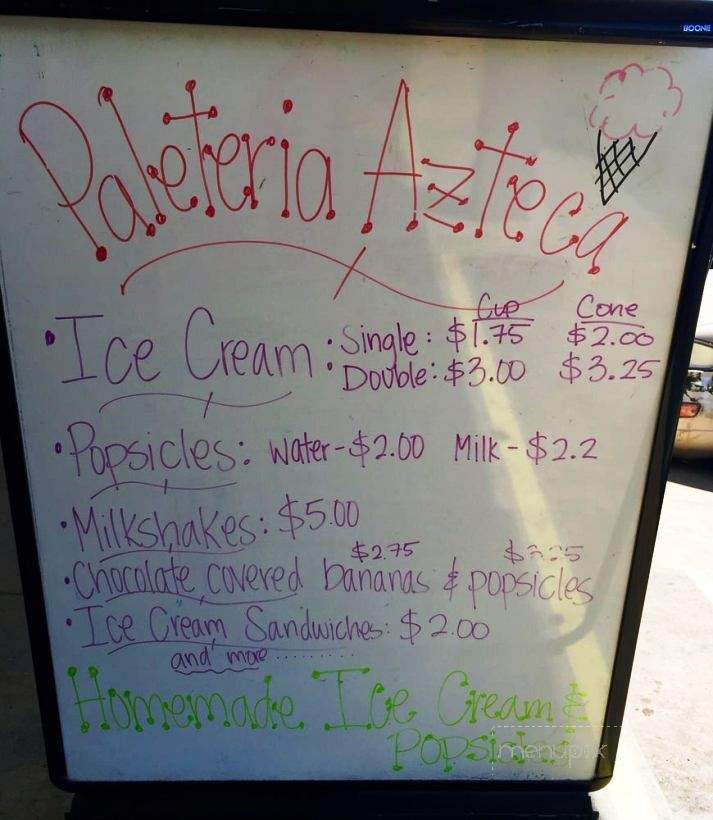 BOONE
Paleteria Azteca
Cup Cone
• Ice Cream • Single: $1.75 $2.00
• Double: $3.00 $3.25
• Popsicles: Water - $2.00 Milk - $2.2
• Milkshakes: $5.00
$2.75
• Chocolate covered bananas & popsicles
• Ice Cream Sandwiches: $2.00
and more ..........
Homemade Ice Cream &
Popsicles
menupix